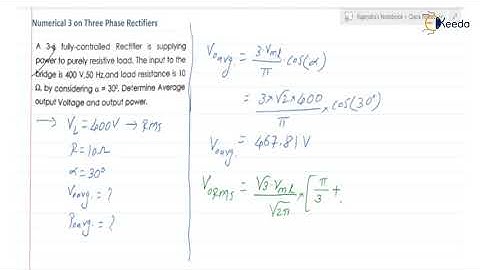 Numerical 3 on Three Phase Rectifiers
A 3-ϕ fully-controlled Rectifier is supplying
power to purely resistive load. The input to the
bridge is 400 V,50 Hz,and load resistance is 10
Ω, by considering α = 30⁰. Determine Average
output Voltage and output power.
→ V_L = 400V → RMS
R = 10Ω
α = 30⁰
V₀avg. = ?
P₀avg. = ?
V₀avg. = 3·V_mL/π · cos(α)
= 3×√2×400/π × cos(30⁰)
V₀avg. = 467.81 V
V₀RMS = √3·V_mL/√2π × [π/3 +
Ekeeda